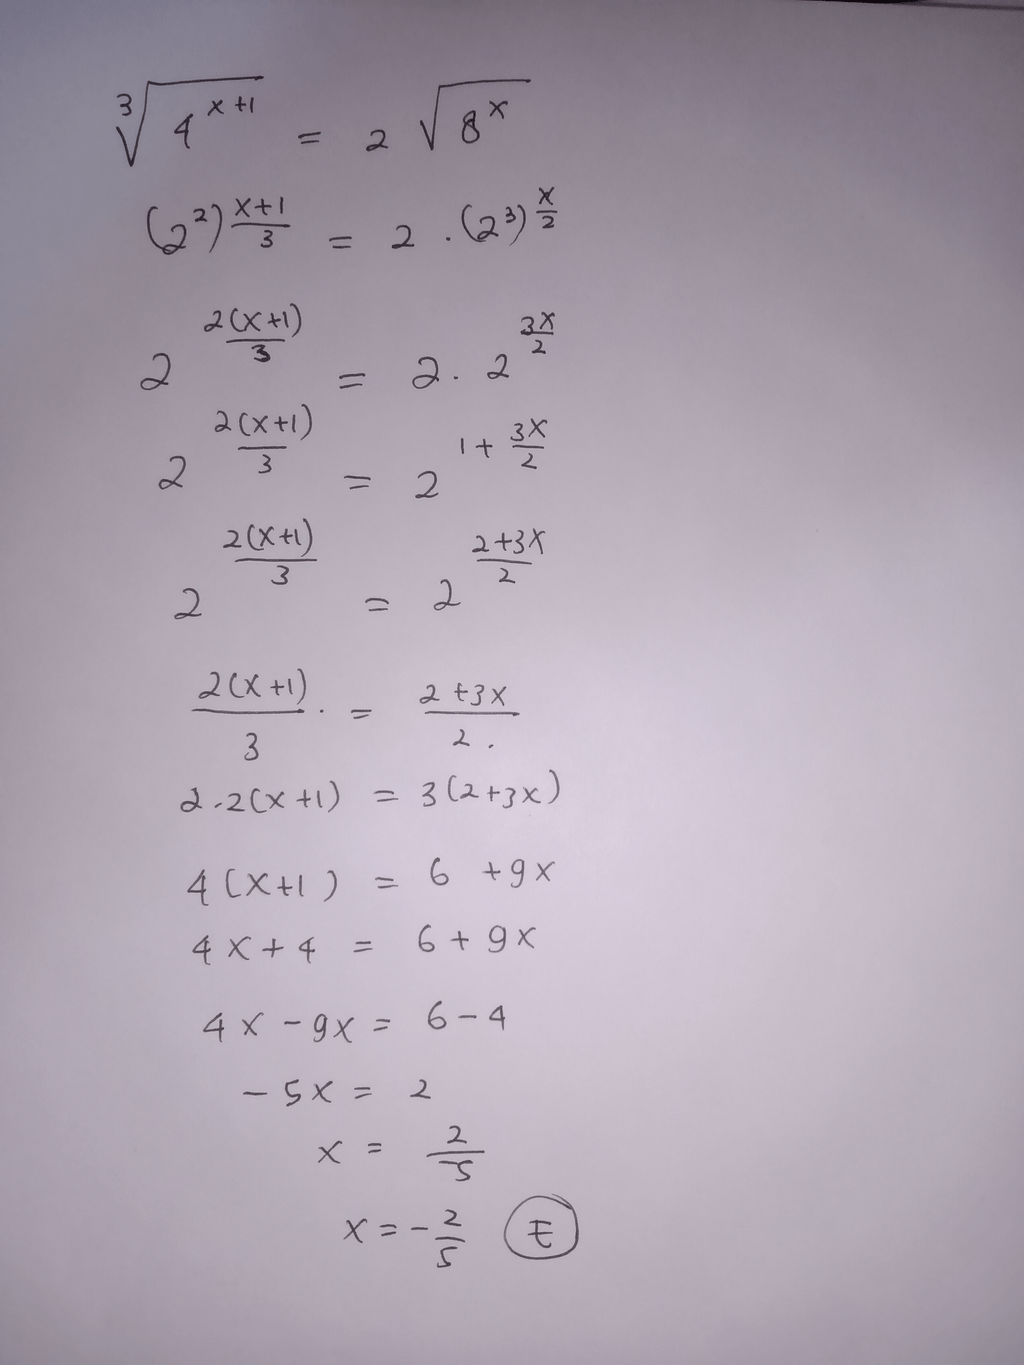 ∛(4^(x+1)) = 2 √(8^x)
(2²)^((x+1)/3) = 2 . (2³)^(x/2)
2^(2(x+1)/3) = 2 . 2^(3x/2)
2^(2(x+1)/3) = 2^(1+3x/2)
2^(2(x+1)/3) = 2^((2+3x)/2)
2(x+1)/3 . = (2+3x)/2 .
2.2(x+1) = 3(2+3x)
4(x+1) = 6 +9x
4x+4 = 6+9x
4x-9x = 6-4
-5x = 2
x = 2/-5
x = -2/5 E